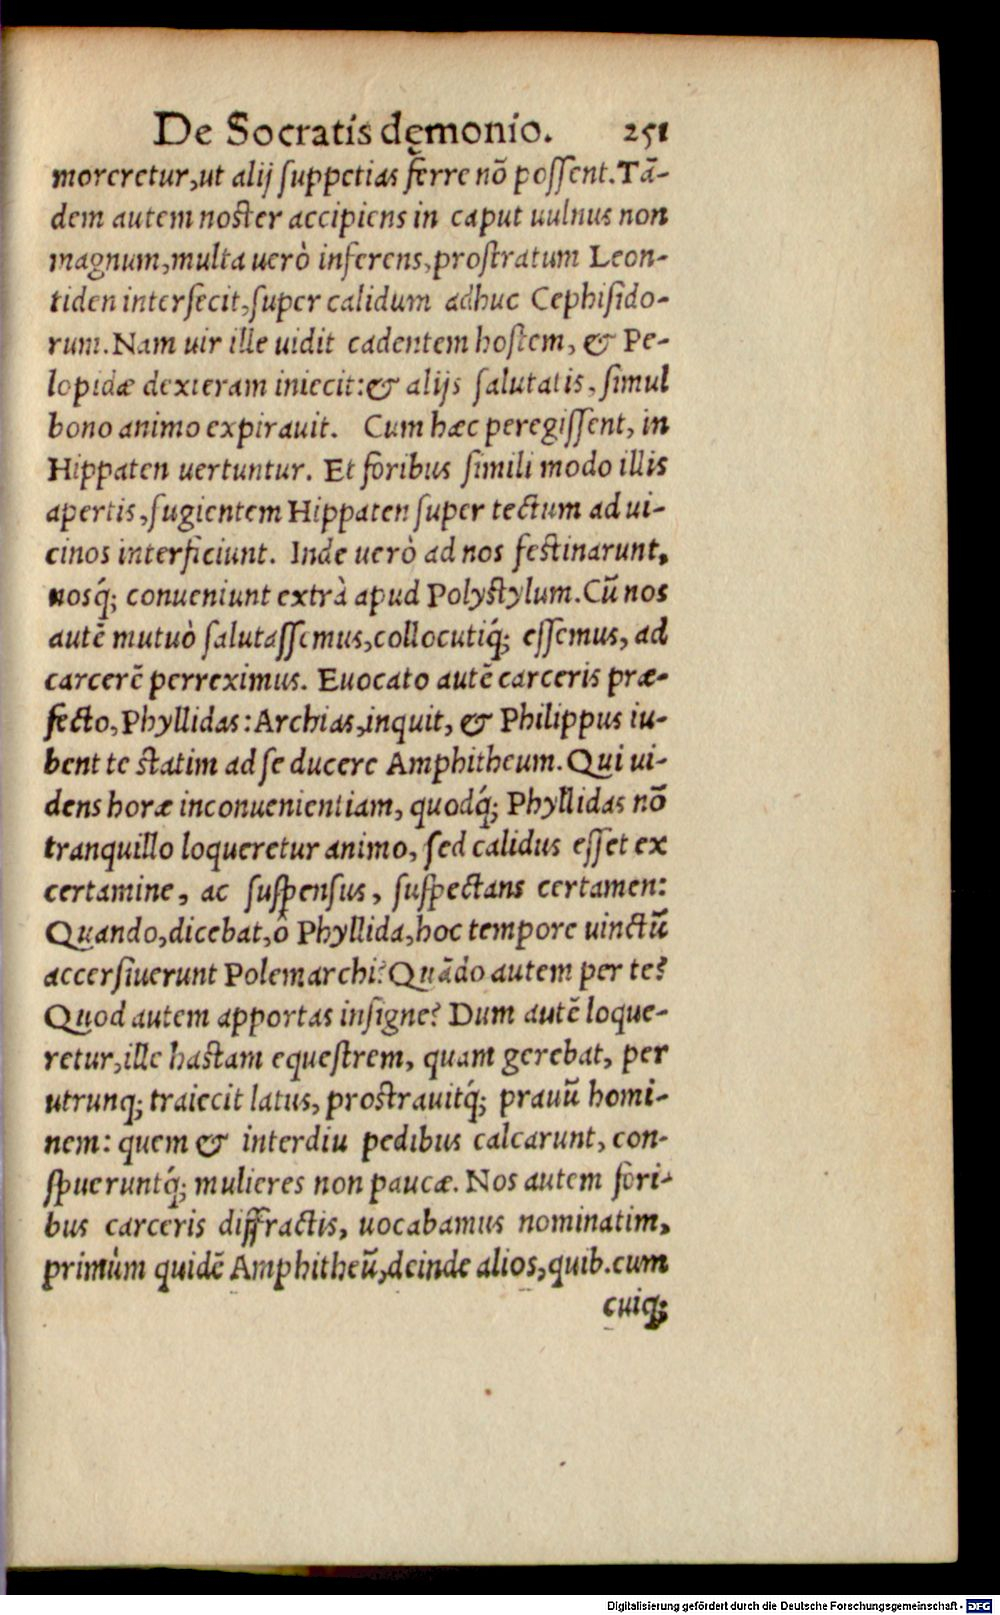 De Socratis dęmonio. 251
moreretur, ut alij suppetias ferre nõ possent. Tã-
dem autem noster accipiens in caput uulnus non
magnum, multa uerò inferens, prostratum Leon-
tiden interfecit, super calidum adhuc Cephisido-
rum. Nam uir ille uidit cadentem hostem, & Pe-
lopidæ dexteram iniecit: & alijs salutatis, simul
bono animo expirauit. Cum hæc peregissent, in
Hippaten uertuntur. Et foribus simili modo illis
apertis, fugientem Hippaten super tectum ad ui-
cinos interficiunt. Inde uerò ad nos festinarunt,
nosq́; conueniunt extrà apud Polystylum. Cũ nos
autẽ mutuò salutassemus, collocutiq́; essemus, ad
carcerẽ perreximus. Euocato autẽ carceris præ-
fecto, Phyllidas: Archias, inquit, & Philippus iu-
bent te statim ad se ducere Amphitheum. Qui ui-
dens horæ inconuenientiam, quodq́; Phyllidas nõ
tranquillo loqueretur animo, sed calidus esset ex
certamine, ac suspensus, suspectans certamen:
Quando, dicebat, ô Phyllida, hoc tempore uinctũ
accersiuerunt Polemarchi? Quãdo autem per te?
Quod autem apportas insigne? Dum autẽ loque-
retur, ille hastam equestrem, quam gerebat, per
utrunq; traiecit latus, prostrauitq́; prauũ homi-
nem: quem & interdiu pedibus calcarunt, con-
spueruntq́; mulieres non paucæ. Nos autem fori-
bus carceris diffractis, uocabamus nominatim,
primùm quidẽ Amphitheũ, deinde alios, quib. cum
cuiq;
Digitalisierung gefördert durch die Deutsche Forschungsgemeinschaft - DFG